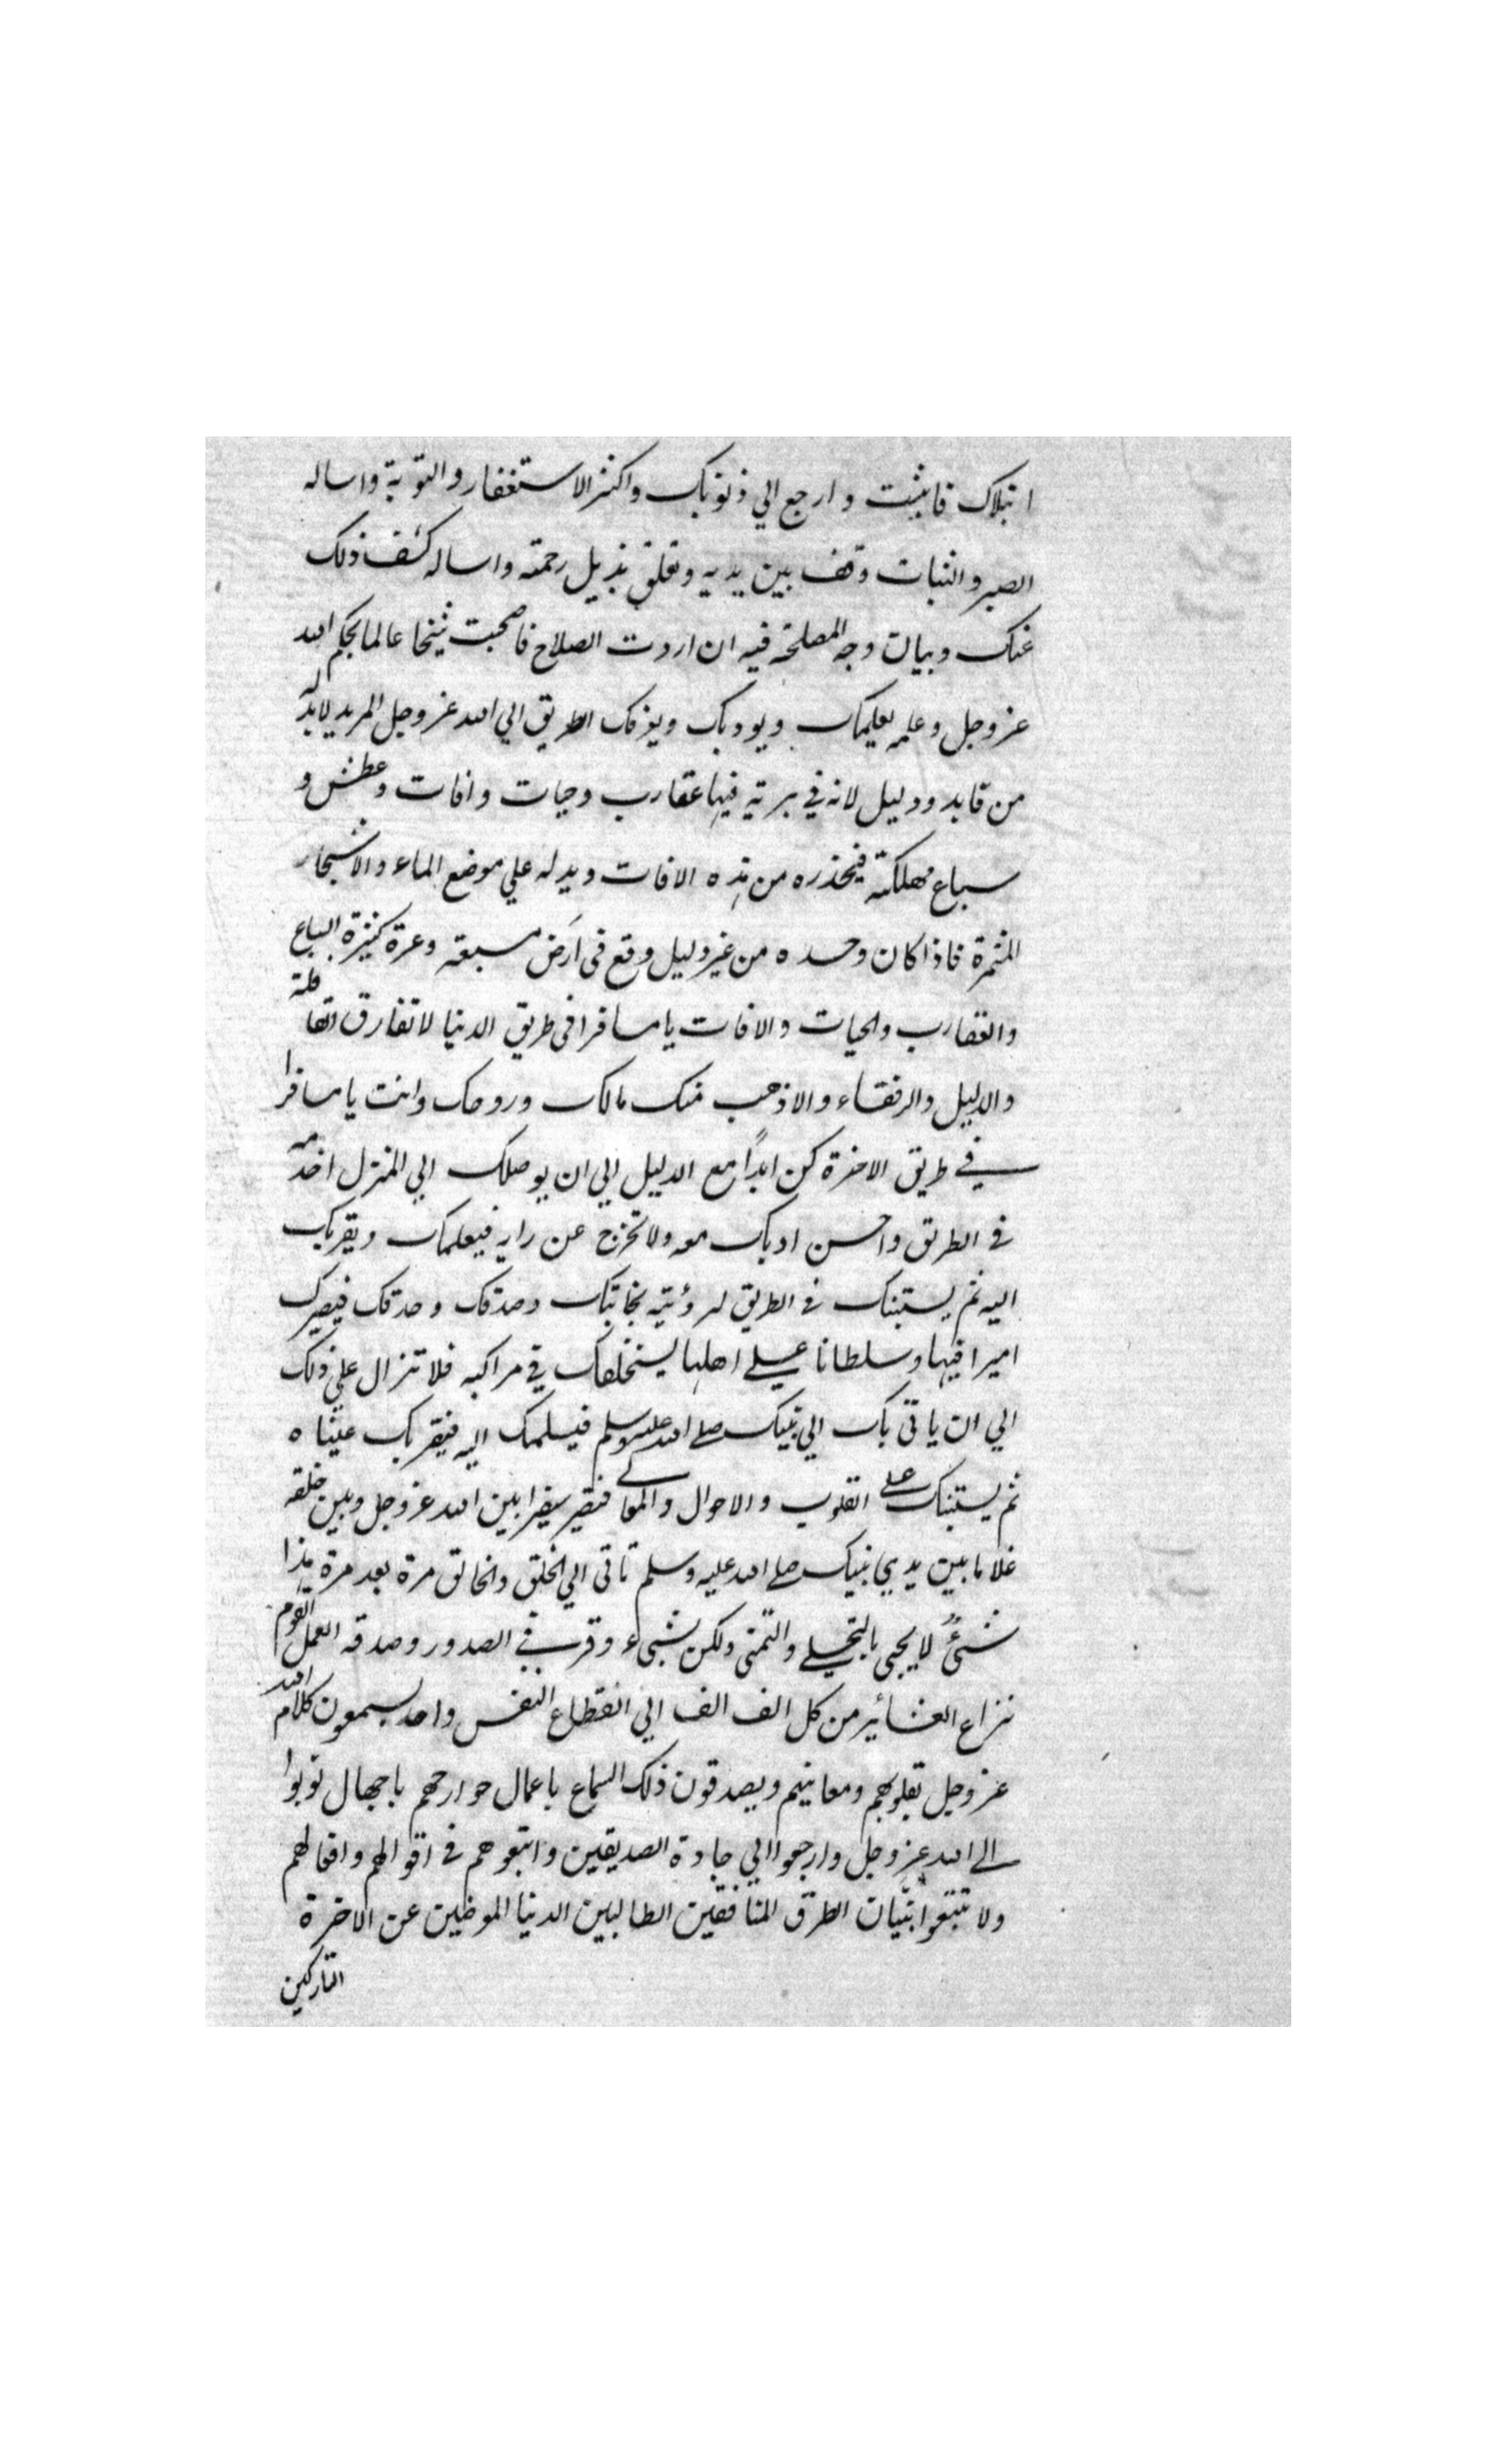 ابتلاك فاثبت وارجع الي ذنوبك واكثر الاستغفار والتوبة واساله
الصبر والثبات وقف بين يديه وتعلق بذيل رحمته واساله كشف ذلك
عنك وبيان وجه المصلحة فيه ان اردت الصلاح فاصحبت شيخا عالما بحكم الله
عز وجل وعلمه يعلمك ويودبك ويعرفك الطريق الي الله عز وجل المريد لابد له
من قايد ودليل لانه في برية فيها عقارب وحيات وافات وعطش و
سباع مهلكة فيحذره من هذه الافات ويدله علي موضع الماء والاشجار
المثمرة فاذا كان وحده من غير دليل وقع في ارض مسبعة وعرة كثيرة السباع
والعقارب والحيات والافات يا مسافرا في طريق الدنيا لا تفارق القافلة
والدليل والرفقاء والا ذهب منك مالك وروحك وانت يا مسافرا
في طريق الاخرة كن ابدًا مع الدليل الي ان يوصلك الي المنزل اخدمه
في الطريق واحسن ادبك معه ولا تخرج عن رايه فيعلمك ويقربك
اليه ثم يستنبك في الطريق لرؤيته نجابتك وصدقك وحذقك فيصيرك
اميرا فيها وسلطانا علي اهلها يستخلفك في مراكبه فلا تزال علي ذلك
الي ان ياتي بك الي نبيك صلے الله عليه وسلم فيسلمك اليه فيقر بك عيناه
ثم يستنبك علي القلوب والاحوال والمعاني فتصير سفيرا بين الله عز وجل وبين خلقه
غلاما بين يدي نبيك صلے الله عليه وسلم تاتي الي الخلق والخالق مرة بعد مرة هذا
شئٌ لا يجي بالتحلي والتمني ولكن بشيء وقر في الصدور وصدقه العمل القوم
نزاع العشائر من كل الف الف الي انقطاع النفس واحد يسمعون كلام الله
عز وجل بقلوبهم ومعانيهم ويصدقون ذلك السماع باعمال جوارحهم يا جهال توبوا
الي الله عز وجل وارجعوا الي جادة الصديقين واتبعوهم في اقوالهم وافعالهم
ولا تتبعوا بنيات الطرق المنافقين الطالبين الدنيا المعرضين عن الاخرة
التاركين